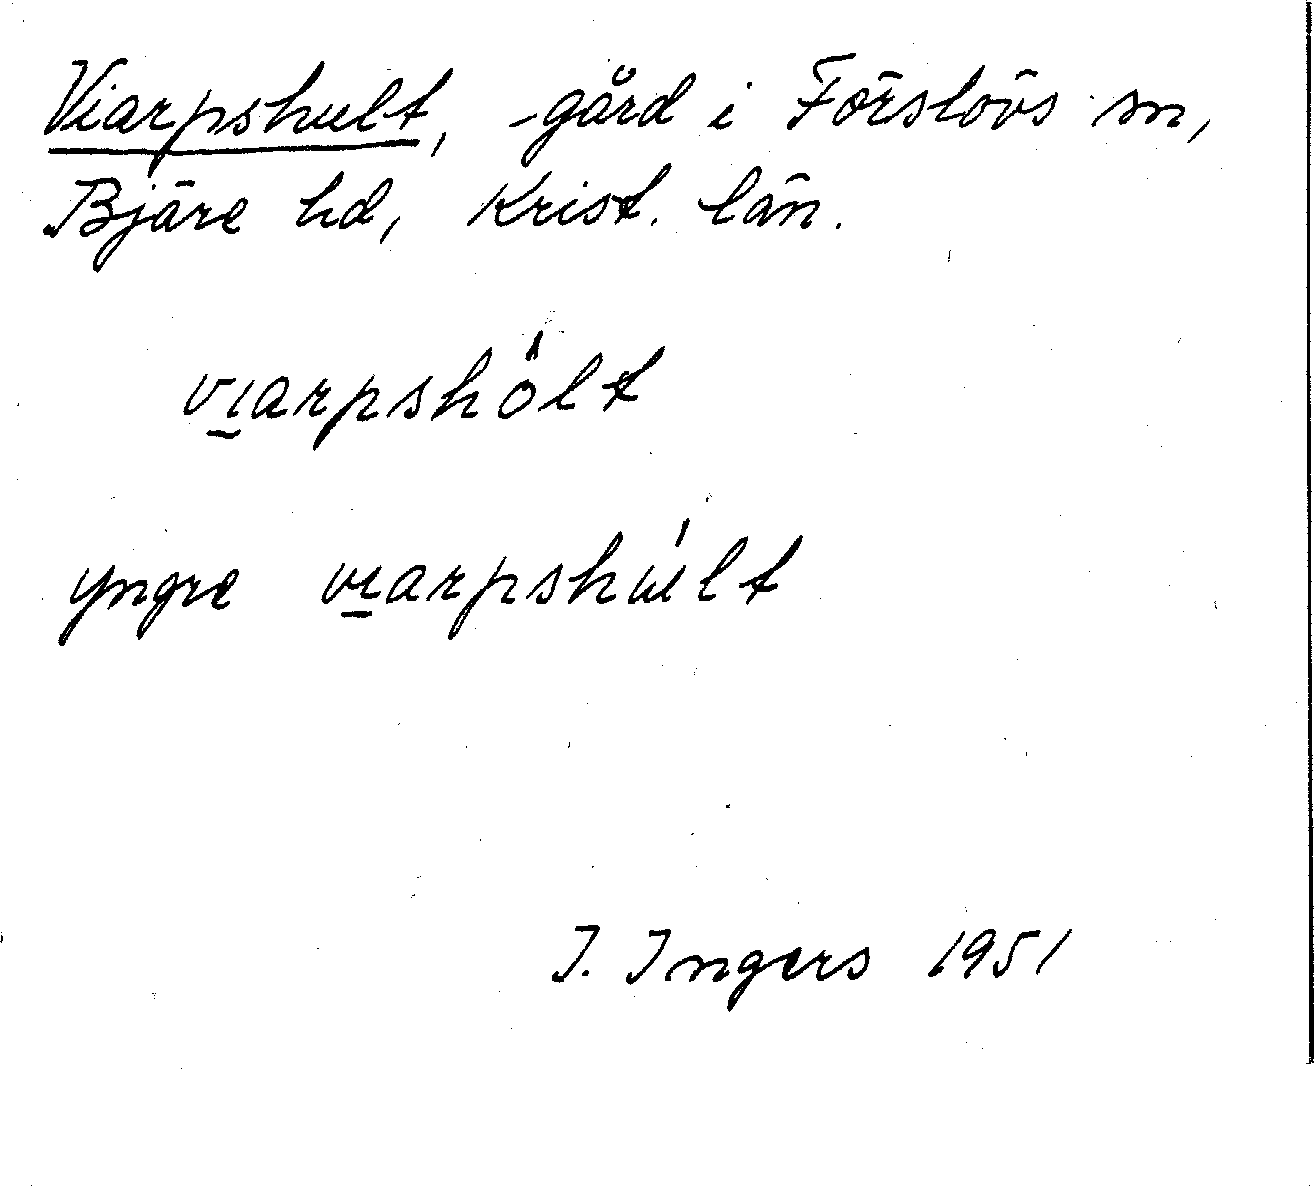 Viarpshult, -gård i Förslövs sn,
Bjäre hd, Krist. län.
vɪ̱arpshö́lt
yngre vɪ̱arpshúlt
I. Ingers 1951